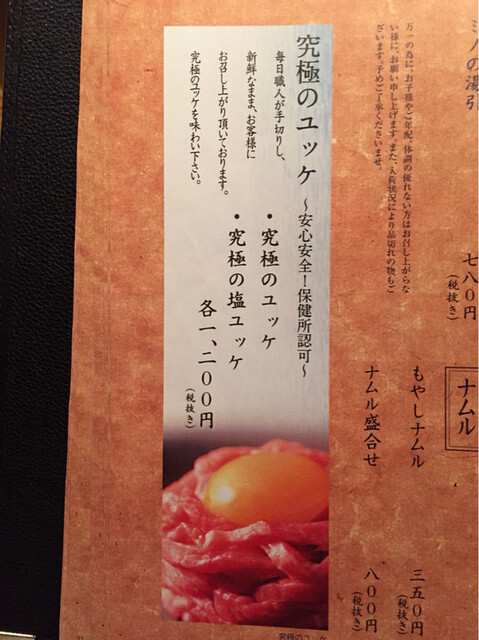 ミノの湯引
七八〇円
（税抜き）
万一の為に、お子様やご年配、体調の優れない方はお召し上がらな
い様に、お願い申し上げます。また、入荷状況により品切れの物もご
ざいます。予めご了承くださいませ。
ナムル
もやしナムル
三五〇円
（税抜き）
ナムル盛合せ
八〇〇円
（税抜き）
究極のユッケ 〜安心安全！保健所認可〜
毎日職人が手切りし、
新鮮なまま、お客様に
お召し上がり頂いております。
究極のユッケを味わい下さい。
・究極のユッケ
・究極の塩ユッケ
各一、二〇〇円
（税抜き）
究極のユッケ